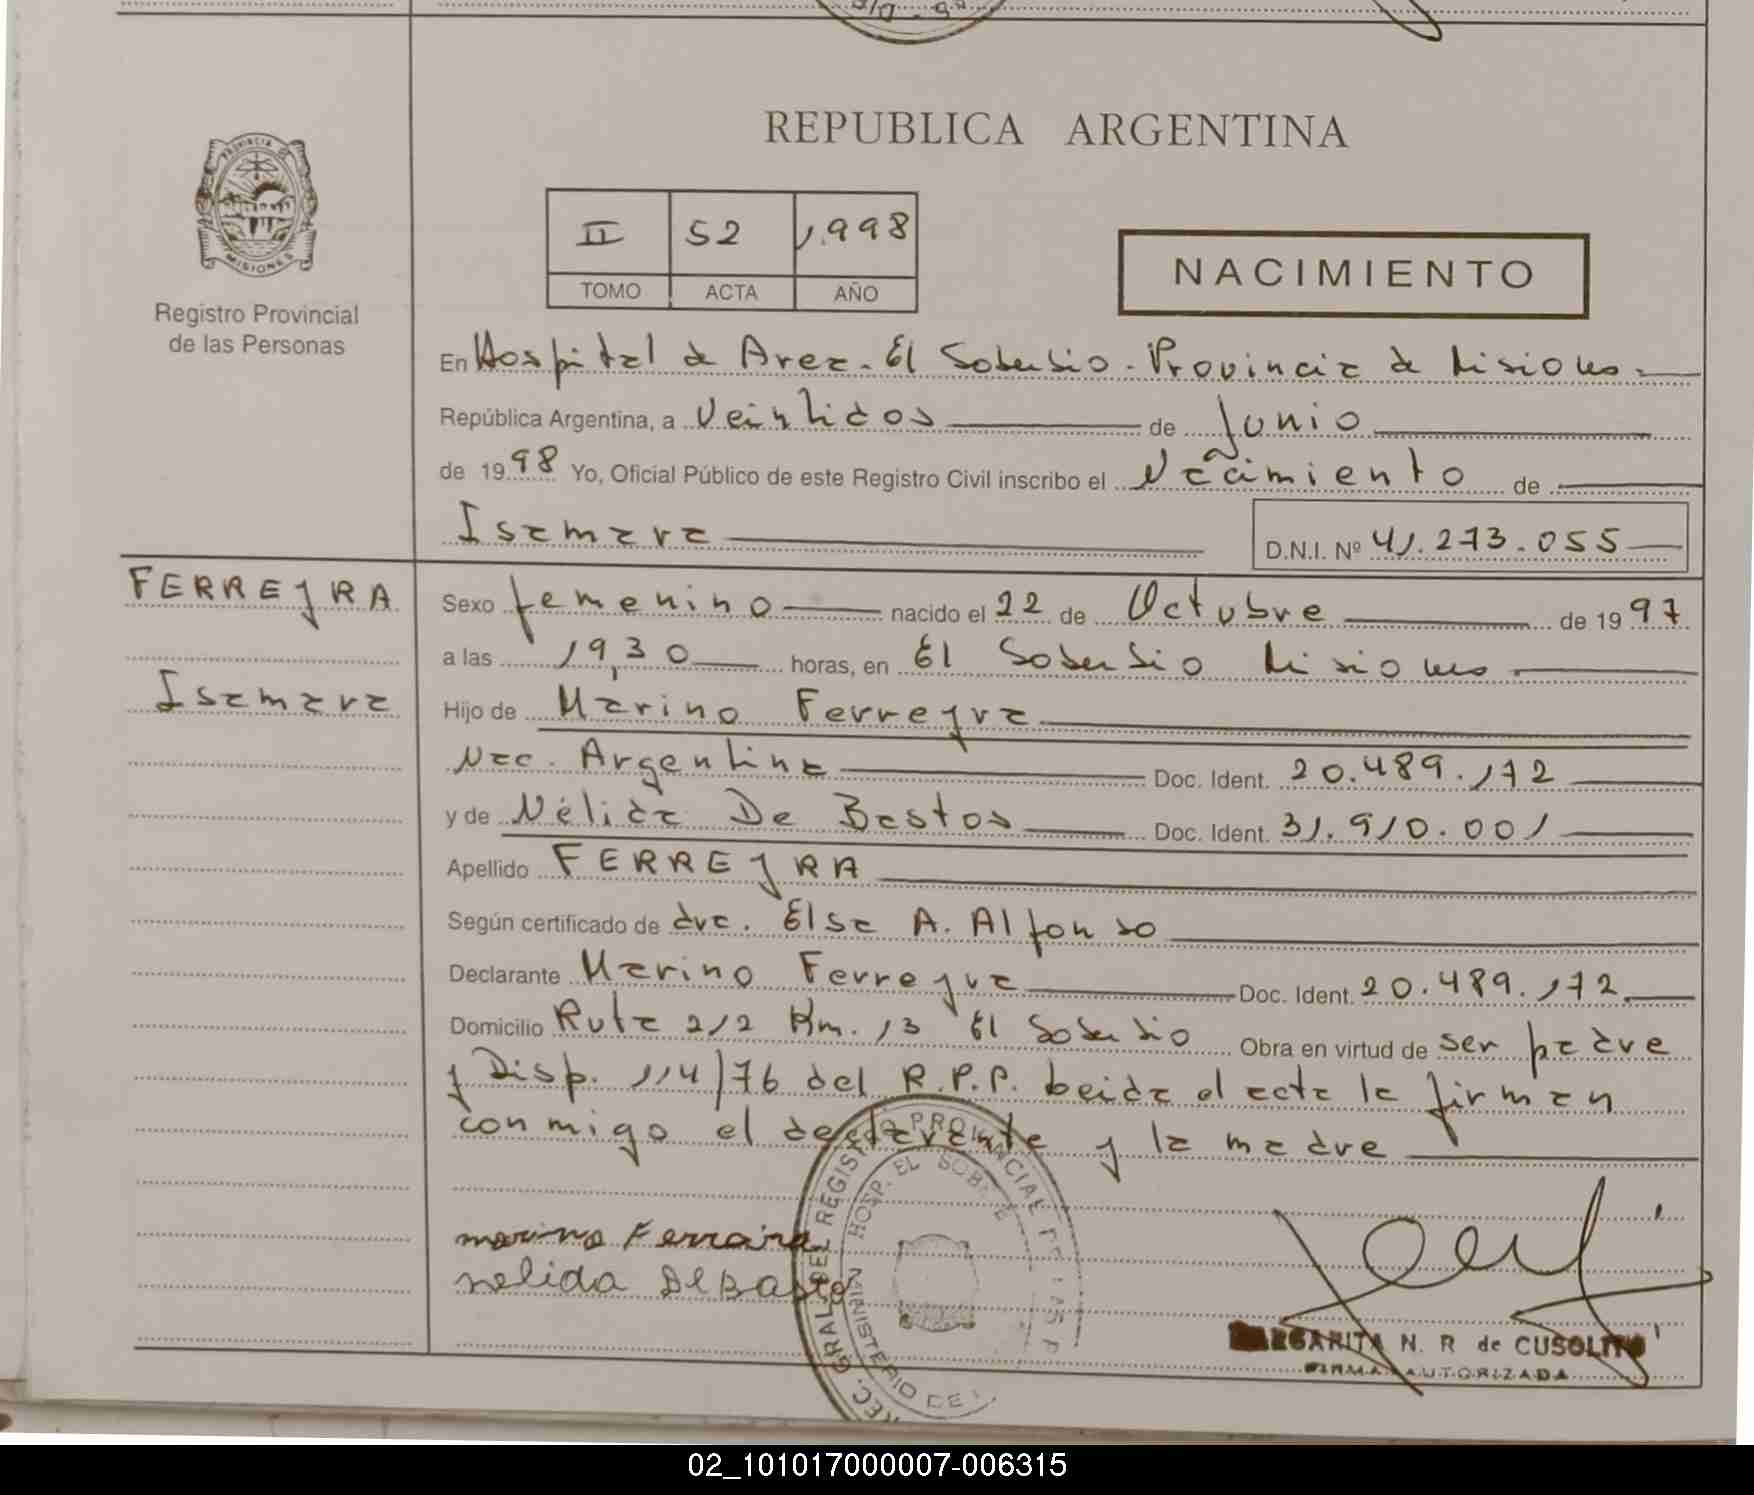 REPUBLICA ARGENTINA
PROVINCIA DE
MISIONES
Registro Provincial
de las Personas
II 52 1.998
TOMO ACTA AÑO
NACIMIENTO
En Hospital de Area. El Soberbio. Provincia de Misiones.
República Argentina, a Veintidos de Junio
de 1998 Yo, Oficial Público de este Registro Civil inscribo el Nacimiento de
Isamara
D.N.I. Nº 41.273.055
FERREYRA
Isamara
Sexo femenino nacido el 22 de Octubre de 1997
a las 19,30 horas, en El Soberbio Misiones
Hijo de Marino Ferreyra
Nac. Argentina Doc. Ident. 20.489.172
y de Nélida De Bastos Doc. Ident. 31.910.001
Apellido FERREYRA
Según certificado de dra. Elsa A. Alfonso
Declarante Marino Ferreyra Doc. Ident. 20.489.172
Domicilio Ruta 212 Km. 13 El Soberbio Obra en virtud de ser padre
y Disp. 114/76 del R.P.P. Leida el acta la firman
conmigo el declarante y la madre
marino Ferraira
nelida DeBasto
GRAL. DEL REGISTRO PROVINCIAL DE LAS P
HOSP. EL SOBE
MINISTERIO DE
MARGARITA N. R de CUSOLITO
FIRMA AUTORIZADA
02_101017000007-006315